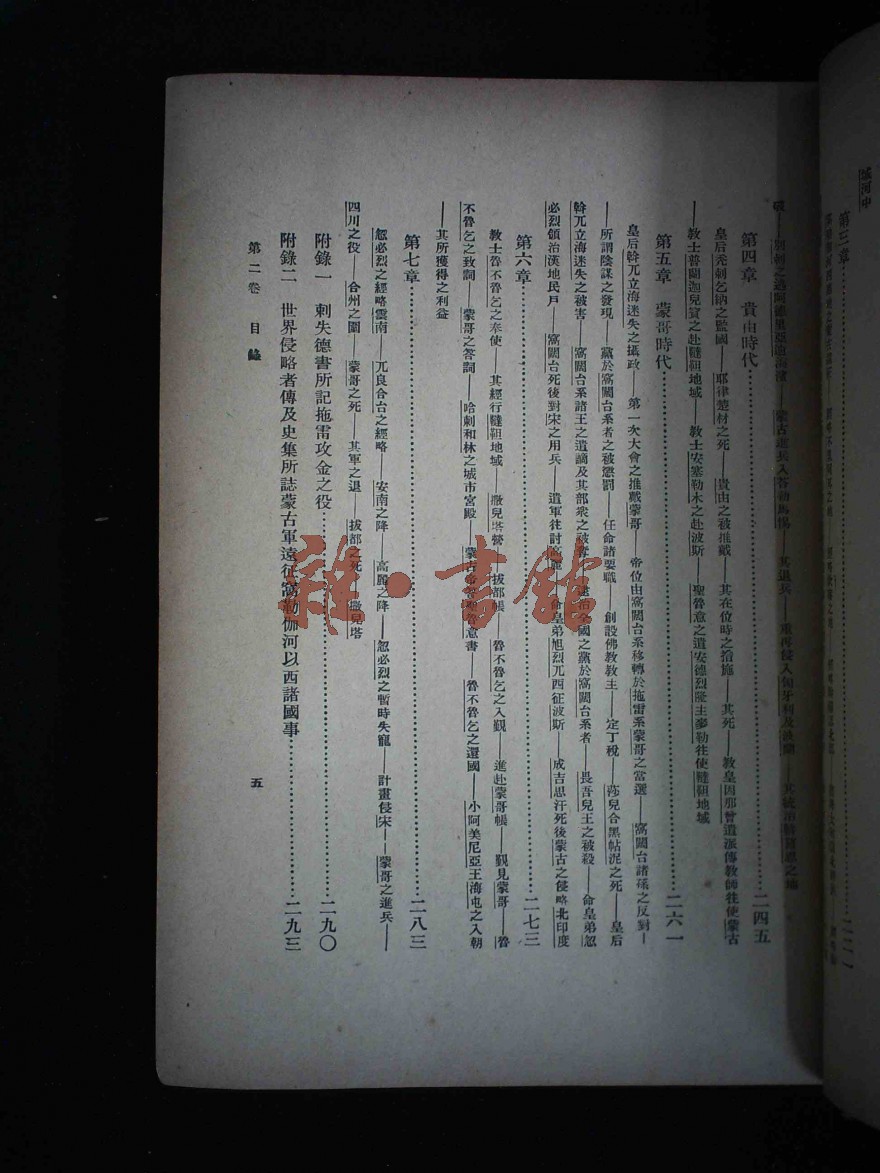 域河中
第三章
別剌之過阿德里亞迪海濱——蒙古進兵入答勒馬惕——其退兵——重再侵入匈牙利及波蘭——其統治斡羅思之地
第四章　貴由時代……二四五
皇后禿剌乞納之監國——耶律楚材之死——貴由之被推戴——其在位時之措施——其死——教皇因那曾遣派傳教師往使蒙古
——教士普蘭迦兒賓之赴韃靼地域——教士安塞勒木之赴波斯——聖魯意之遣安德烈隆主麥勒往使韃靼地域
第五章　蒙哥時代……二六一
皇后斡兀立海迷失之攝政——第一次大會之推戴蒙哥——帝位由窩闊台系移轉於拖雷系蒙哥之當選——窩闊台諸孫之反對——
——所謂陰謀之發現——黨於窩闊台系者之被懲罰——任命諸要職——創設佛教教主——定丁稅——莎兒合黑帖泥之死——皇后
斡兀立海迷失之被害——窩闊台系諸王之遣謫及其部衆之被奪——連治全國之黨於窩闊台系者——畏吾兒王之被殺——命皇弟忽
必烈領治漢地民戶——窩闊台死後對宋之用兵——遣軍往討高麗——命皇弟旭烈兀西征波斯——成吉思汗死後蒙古之侵略北印度
第六章……二七三
教士魯不魯乞之奉使——其經行韃靼地域——撒兒塔營——拔都帳——魯不魯乞之入覲——進赴蒙哥帳——覲見蒙哥——魯
不魯乞之致詞——蒙哥之答詞——哈剌和林之城市宮殿——蒙古帝答聖魯意書——魯不魯乞之還國——小阿美尼亞王海屯之入朝
——其所獲得之利益
第七章……二八三
忽必烈之經略雲南——兀良合台之經略——安南之降——高麗之降——忽必烈之暫時失寵——計畫侵宋——蒙哥之進兵——
四川之役——合州之圍——蒙哥之死——其軍之退——拔都之死——撒兒塔
附錄一　剌失德書所記拖雷攻金之役……二九〇
附錄二　世界侵略者傳及史集所誌蒙古軍遠征窩勒伽河以西諸國事……二九三
第二卷　目錄
五
雜·書館